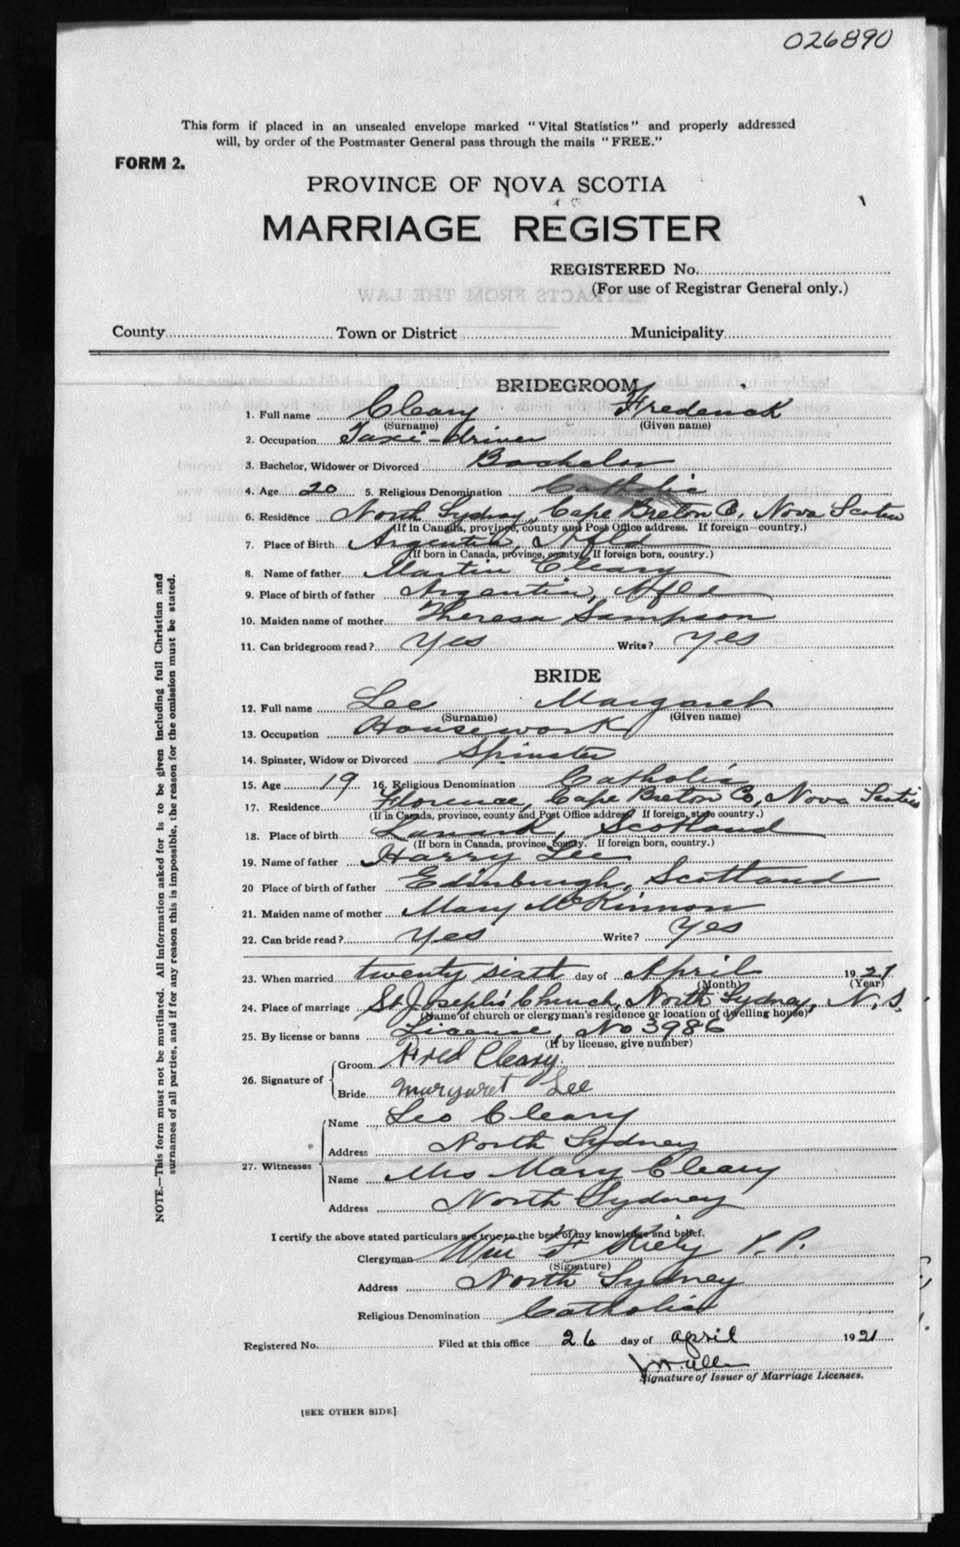 026890
This form if placed in an unsealed envelope marked "Vital Statistics" and properly addressed
will, by order of the Postmaster General pass through the mails "FREE."
FORM 2.
PROVINCE OF NOVA SCOTIA
MARRIAGE REGISTER
REGISTERED No.
(For use of Registrar General only.)
County Town or District Municipality
BRIDEGROOM
1. Full name Cleary Frederick
(Surname) (Given name)
2. Occupation Taxi-driver
3. Bachelor, Widower or Divorced Bachelor
4. Age 20 5. Religious Denomination Catholic
6. Residence North Sydney, Cape Breton Co, Nova Scotia
(If in Canada, province, county and Post Office address. If foreign—country.)
7. Place of Birth Argentia, Nfld
(If born in Canada, province, county. If foreign born, country.)
8. Name of father Martin Cleary
9. Place of birth of father Argentia, Nfld
10. Maiden name of mother Theresa Sampson
11. Can bridegroom read? Yes Write? Yes
BRIDE
12. Full name Lee Margaret
(Surname) (Given name)
13. Occupation Housework
14. Spinster, Widow or Divorced Spinster
15. Age 19 16. Religious Denomination Catholic
17. Residence Florence, Cape Breton Co, Nova Scotia
(If in Canada, province, county and Post Office address. If foreign, state country.)
18. Place of birth Lanark, Scotland
(If born in Canada, province, county. If foreign born, country.)
19. Name of father Harry Lee
20 Place of birth of father Edinburgh, Scotland
21. Maiden name of mother Mary McKinnon
22. Can bride read? Yes Write? Yes
23. When married twenty sixth day of April 1921
(Month) (Year)
24. Place of marriage St Joseph's Church, North Sydney, N.S.
(Name of church or clergyman's residence or location of dwelling house)
25. By license or banns License, No 3986
(If by license, give number)
26. Signature of Groom Fred Cleary
Bride Margaret Lee
27. Witnesses Name Leo Cleary
Address North Sydney
Name Mrs Mary Cleary
Address North Sydney
I certify the above stated particulars are true to the best of my knowledge and belief.
Clergyman Wm F Kiely P.P.
(Signature)
Address North Sydney
Religious Denomination Catholic
Registered No. Filed at this office 26 day of April 1921
Signature of Issuer of Marriage Licenses.
[SEE OTHER SIDE]
NOTE.—This form must not be mutilated. All information asked for is to be given including full Christian and
surnames of all parties, and if for any reason this is impossible, the reason for the omission must be stated.